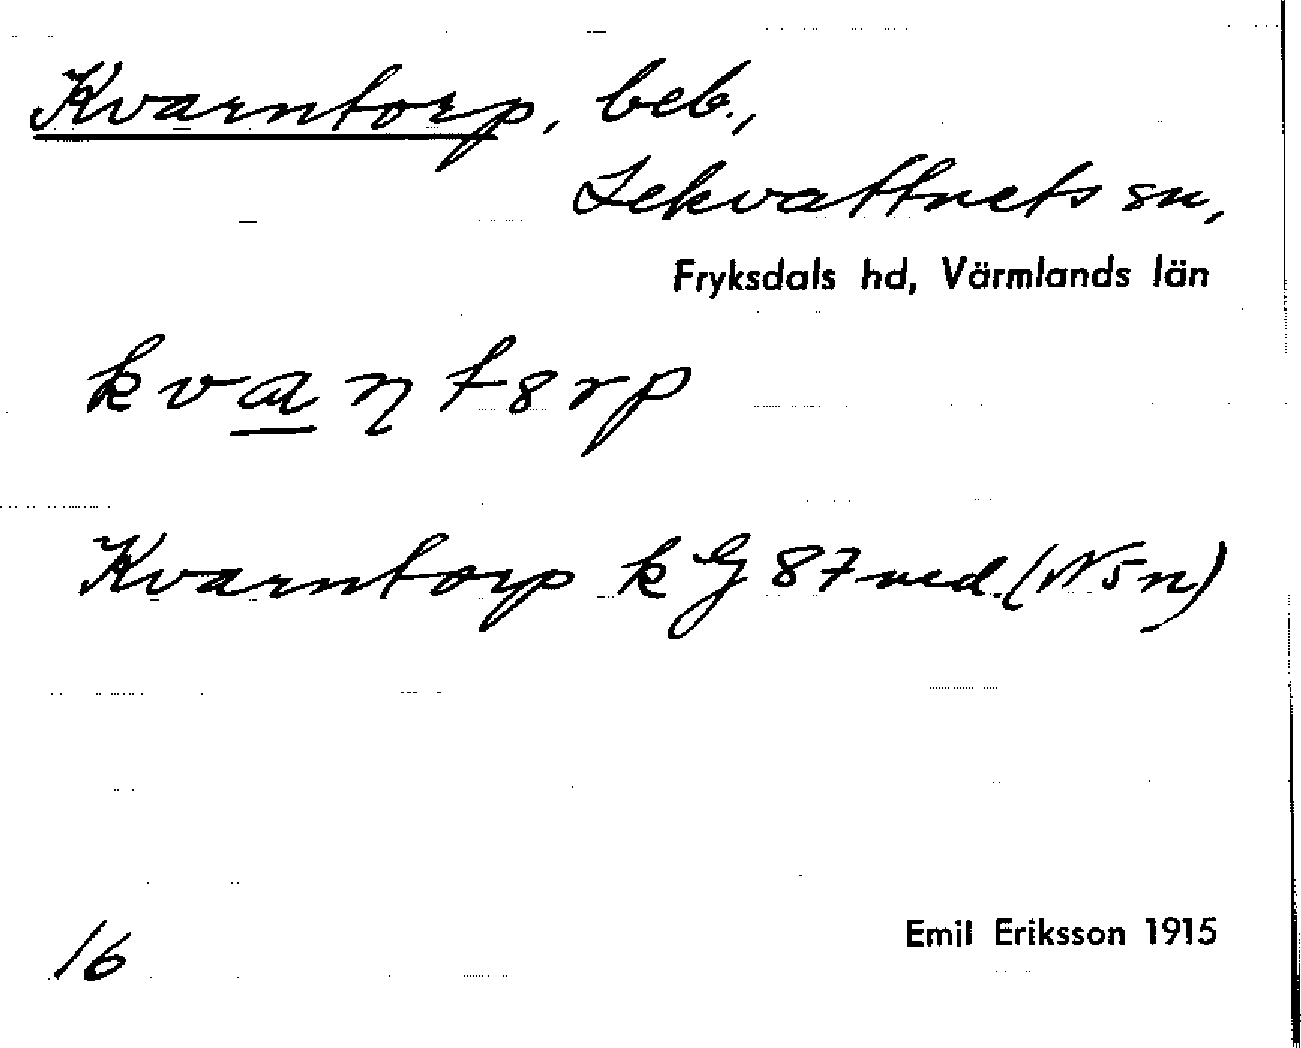 Kvarntorp, beb.,
Lekvattnets sn,
Fryksdals hd, Värmlands län
kvaɳtɞrp
Kvarntorp k G 87 ned. (N5n)
16
Emil Eriksson 1915